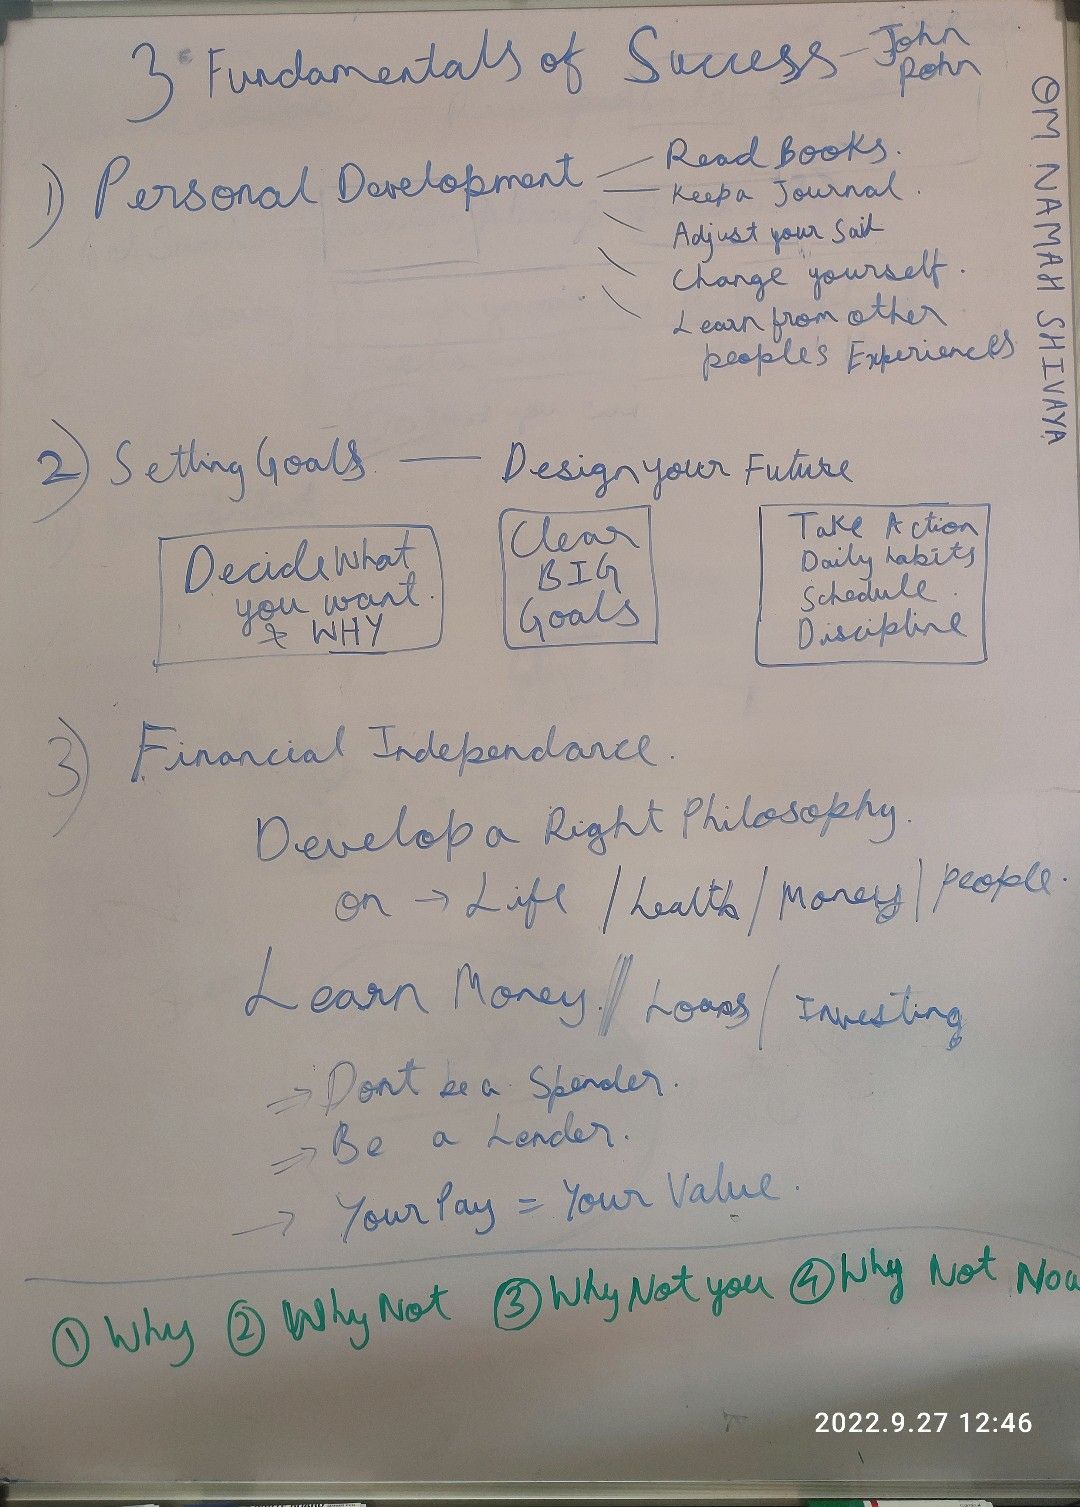 3 Fundamentals of Success - John Rohn
OM NAMAH SHIVAYA
1) Personal Development
Read Books.
Keep a Journal.
Adjust your Sail
Change yourself.
Learn from other
people's Experiences
2) Setting Goals — Design your Future
Decide What
you want.
& WHY
Clear
BIG
Goals
Take Action
Daily habits
Schedule.
Discipline
3) Financial Independance.
Develop a Right Philosophy.
on → Life / health / Money / people.
Learn Money / Loans / Investing
⇒ Dont be a Spender.
⇒ Be a Lender.
→ Your Pay = Your Value.
① Why ② Why Not ③ Why Not you ④ Why Not Now
2022.9.27 12:46